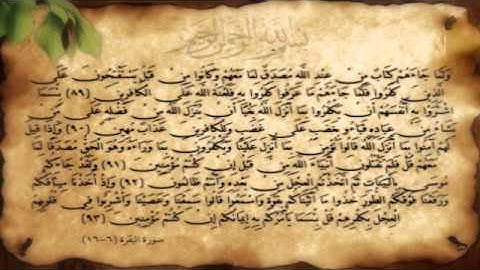 بسم الله الرحمن الرحيم
وَلَمَّا جَاءَهُمْ كِتَابٌ مِنْ عِنْدِ اللَّهِ مُصَدِّقٌ لِمَا مَعَهُمْ وَكَانُوا مِنْ قَبْلُ يَسْتَفْتِحُونَ عَلَى
الَّذِينَ كَفَرُوا فَلَمَّا جَاءَهُمْ مَا عَرَفُوا كَفَرُوا بِهِ فَلَعْنَةُ اللَّهِ عَلَى الْكَافِرِينَ (٨٩) بِئْسَمَا
اشْتَرَوْا بِهِ أَنْفُسَهُمْ أَنْ يَكْفُرُوا بِمَا أَنْزَلَ اللَّهُ بَغْيًا أَنْ يُنَزِّلَ اللَّهُ مِنْ فَضْلِهِ عَلَى مَنْ
يَشَاءُ مِنْ عِبَادِهِ فَبَاءُوا بِغَضَبٍ عَلَى غَضَبٍ وَلِلْكَافِرِينَ عَذَابٌ مُهِينٌ (٩٠) وَإِذَا قِيلَ
لَهُمْ آمِنُوا بِمَا أَنْزَلَ اللَّهُ قَالُوا نُؤْمِنُ بِمَا أُنْزِلَ عَلَيْنَا وَيَكْفُرُونَ بِمَا وَرَاءَهُ وَهُوَ الْحَقُّ مُصَدِّقًا لِمَا
مَعَهُمْ قُلْ فَلِمَ تَقْتُلُونَ أَنْبِيَاءَ اللَّهِ مِنْ قَبْلُ إِنْ كُنْتُمْ مُؤْمِنِينَ (٩١) وَلَقَدْ جَاءَكُمْ
مُوسَى بِالْبَيِّنَاتِ ثُمَّ اتَّخَذْتُمُ الْعِجْلَ مِنْ بَعْدِهِ وَأَنْتُمْ ظَالِمُونَ (٩٢) وَإِذْ أَخَذْنَا مِيثَاقَكُمْ
وَرَفَعْنَا فَوْقَكُمُ الطُّورَ خُذُوا مَا آتَيْنَاكُمْ بِقُوَّةٍ وَاسْمَعُوا قَالُوا سَمِعْنَا وَعَصَيْنَا وَأُشْرِبُوا فِي قُلُوبِهِمُ
الْعِجْلَ بِكُفْرِهِمْ قُلْ بِئْسَمَا يَأْمُرُكُمْ بِهِ إِيمَانُكُمْ إِنْ كُنْتُمْ مُؤْمِنِينَ (٩٣)
سورة البقرة